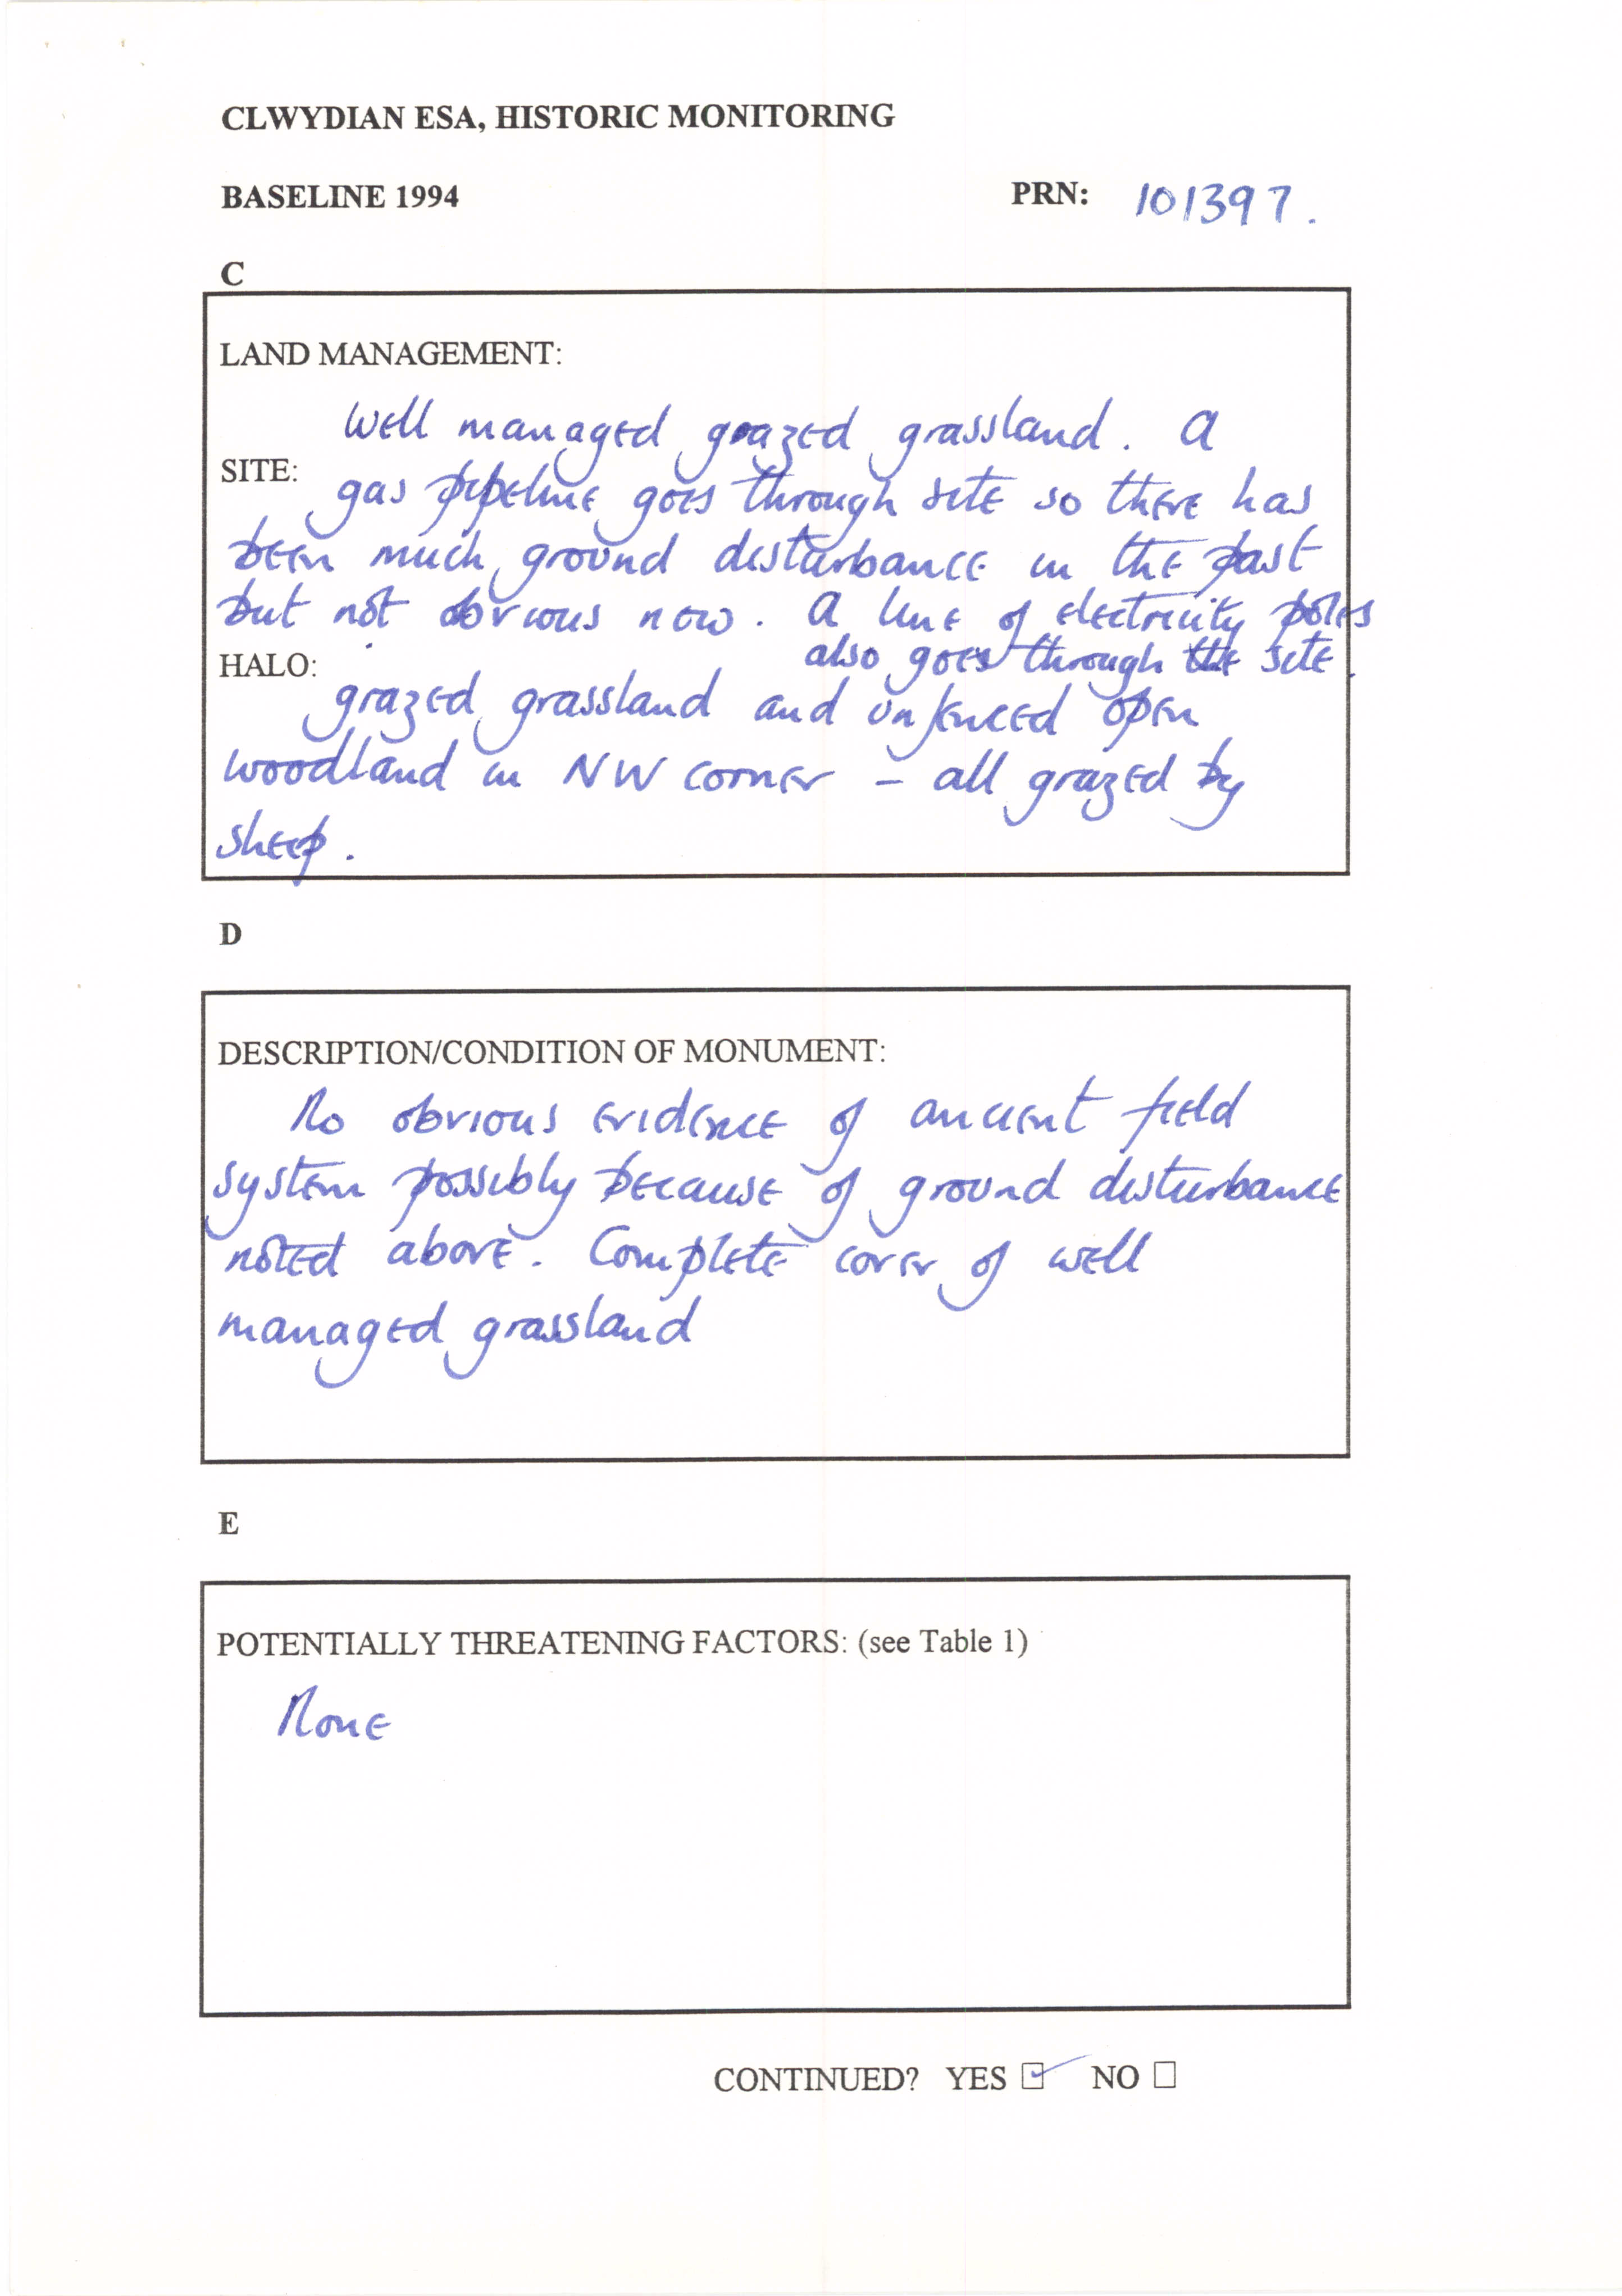 CLWYDIAN ESA, HISTORIC MONITORING
BASELINE 1994 PRN: 101397.
C
LAND MANAGEMENT:
Well managed grazed grassland. A
SITE: gas pipeline goes through site so there has
been much ground disturbance in the past
but not obvious now. A line of electricity poles
also goes through the site.
HALO:
grazed grassland and unfenced open
woodland in NW corner - all grazed by
sheep.
D
DESCRIPTION/CONDITION OF MONUMENT:
No obvious evidence of ancient field
system possibly because of ground disturbance
noted above. Complete cover of well
managed grassland
E
POTENTIALLY THREATENING FACTORS: (see Table 1)
None
CONTINUED? YES ☑ NO ☐